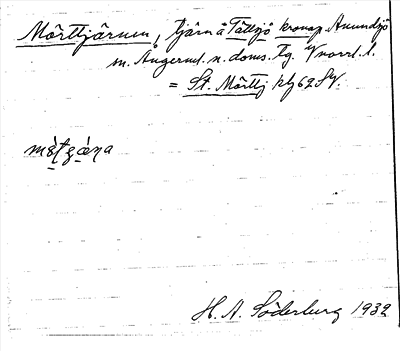 Mörttjärnen, tjärn å Tällsjö kronop. Anundsjö
sn. Ångerml. n. doms. Tg. Vnorrl. l.
= St. Mörttj kbl 62 SV.
H. A. Söderburg 1932